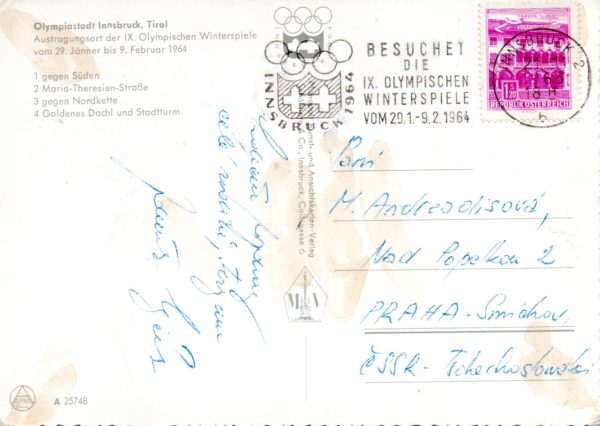 Olympiastadt Innsbruck, Tirol
Austragungsort der IX. Olympischen Winterspiele
vom 29. Jänner bis 9. Februar 1964
1 gegen Süden
2 Maria-Theresien-Straße
3 gegen Nordkette
4 Goldenes Dachl und Stadtturm
INNSBRUCK 1964
BESUCHET
DIE
IX. OLYMPISCHEN
WINTERSPIELE
VOM 29.1.-9.2.1964
INNSBRUCK 2
b
REPUBLIK ÖSTERREICH
Kunst- und Ansichtskarten-Verlag
& Co., Innsbruck,
M V
celé rodině
Paní
M. Andreadisová,
Nad Popelkou 2
PRAHA-Smíchov,
ČSSR-Tschechoslowakei
A 25748